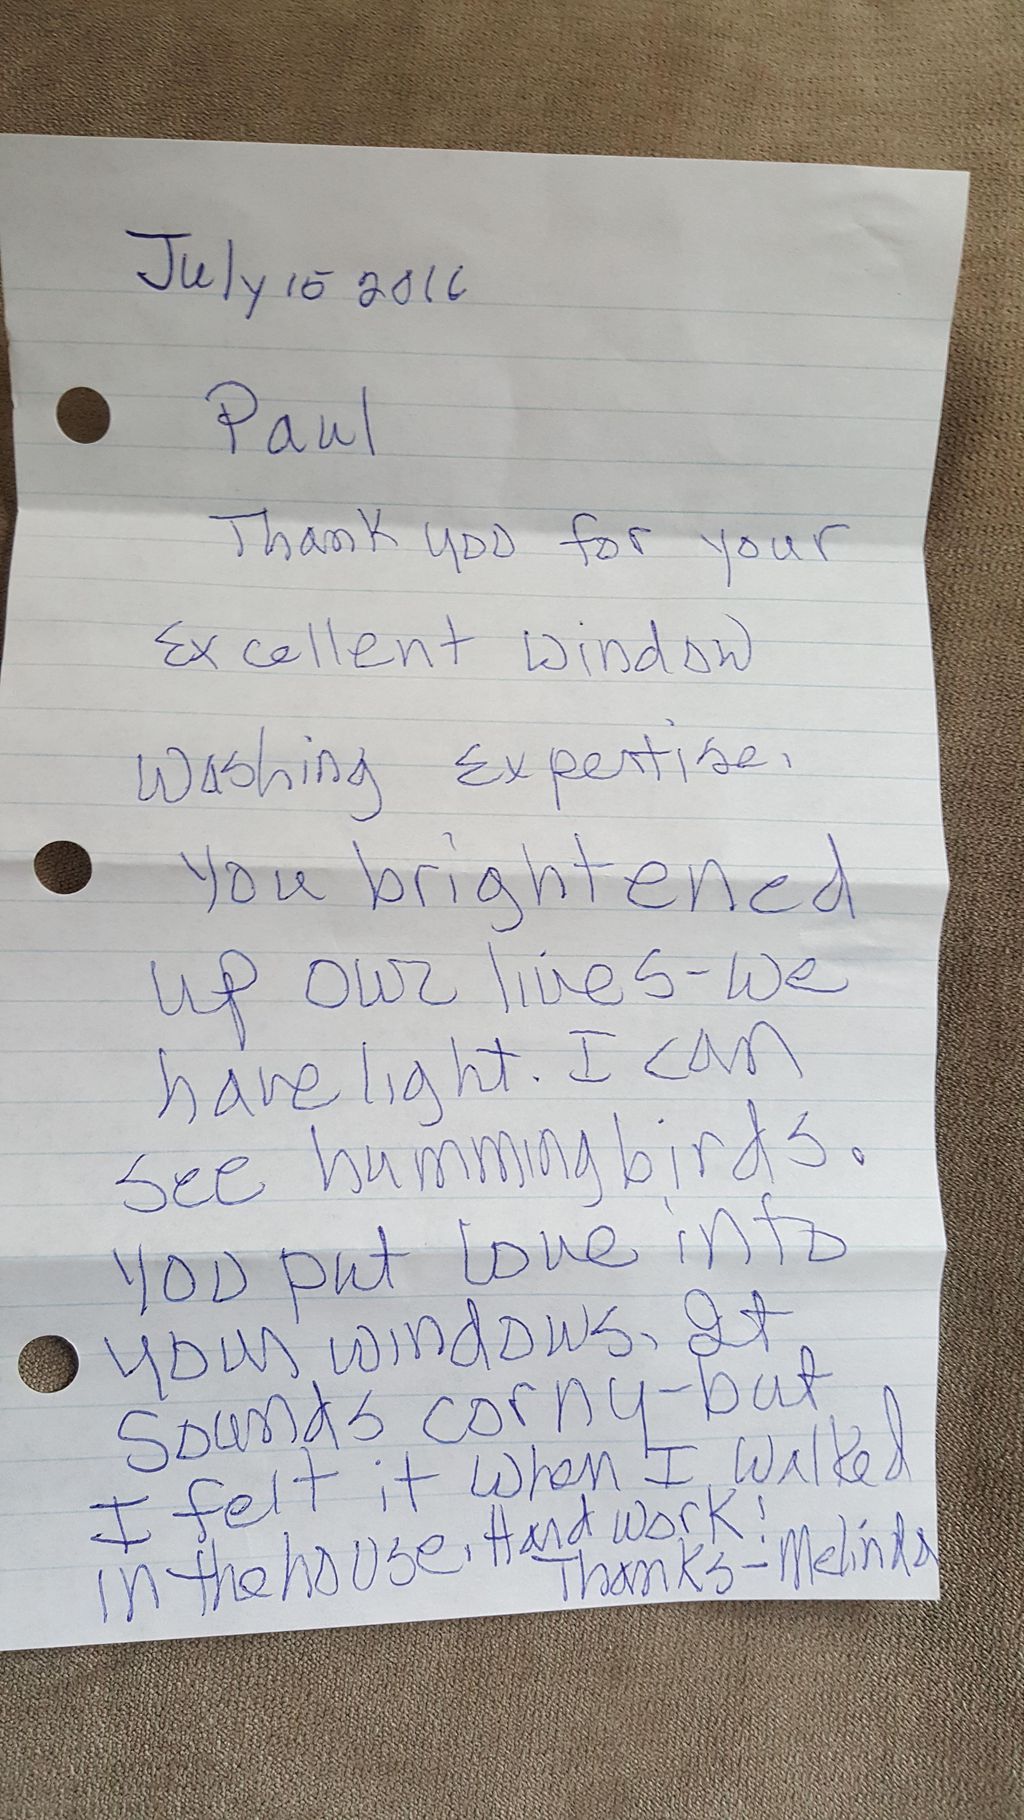 July 15 2016
Paul
Thank you for your
Excellent window
Washing Expertise.
You brightened
up our lives-we
have light. I can
see hummingbirds.
You put love into
your windows. It
sounds corny-but
I felt it when I walked
in the house. Hard work!
Thanks-Melinda